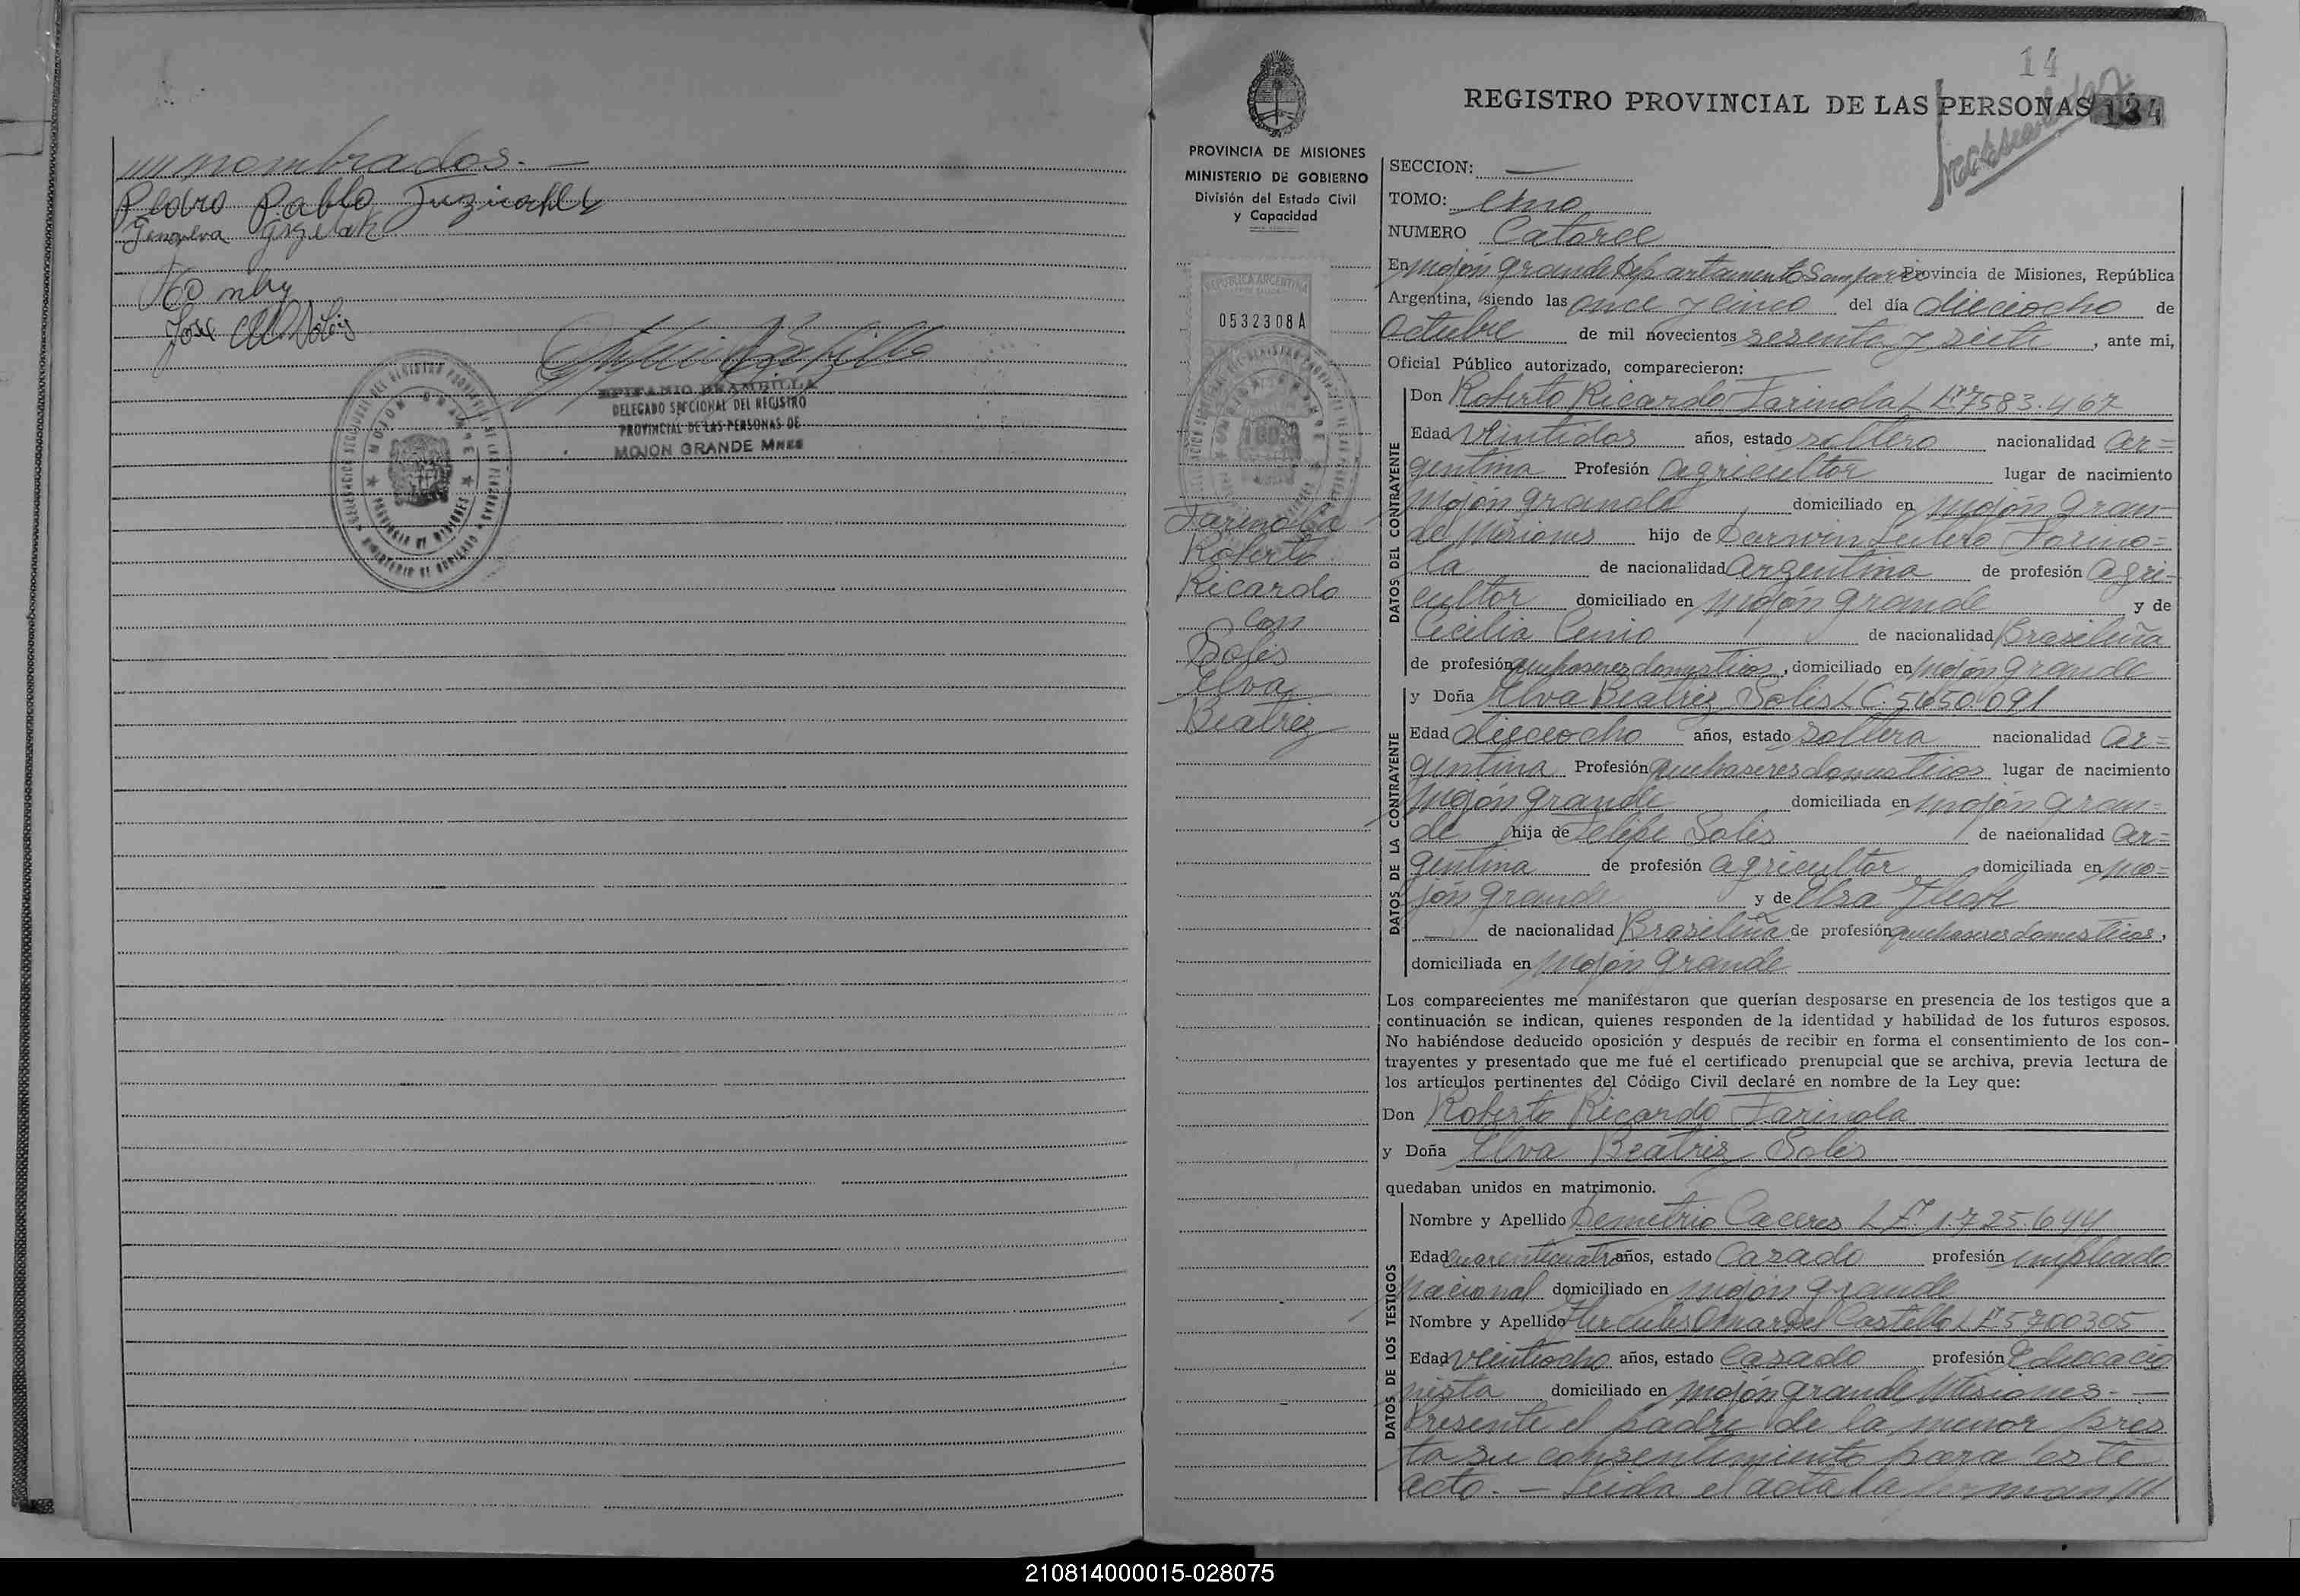 nombrados.-
Pedro Pablo
Genoveva
José Solis
EPIFANIO BRAMBILLA
DELEGADO SECCIONAL DEL REGISTRO
PROVINCIAL DE LAS PERSONAS DE
MOJON GRANDE MNES
14
REGISTRO PROVINCIAL DE LAS PERSONAS 134
PROVINCIA DE MISIONES
MINISTERIO DE GOBIERNO
División del Estado Civil
y Capacidad
REPUBLICA ARGENTINA
0532308A
Farinola
Roberto
Ricardo
con
Solis
Elva
Beatriz
SECCION: —
TOMO: Uno
NUMERO Catorce
En Mojón Grande Departamento San Javier Provincia de Misiones, República
Argentina, siendo las once y cinco del día dieciocho de
Octubre de mil novecientos sesenta y siete, ante mi,
Oficial Público autorizado, comparecieron:
DATOS DEL CONTRAYENTE
Don Roberto Ricardo Farinola L.E. 7583.467
Edad veintidos años, estado soltero nacionalidad Ar=
gentina Profesión agricultor lugar de nacimiento
Mojón Grande domiciliado en Mojón Gran-
de Misiones hijo de Darwin Farino=
la de nacionalidad Argentina de profesión agri-
cultor domiciliado en Mojón Grande y de
Cecilia de nacionalidad Brasileña
de profesión quehaseres domesticos, domiciliado en Mojón Grande
DATOS DE LA CONTRAYENTE
y Doña Elva Beatriz Solis L.C. 5650.091
Edad dieciocho años, estado soltera nacionalidad Ar=
gentina Profesión quehaseres domesticos lugar de nacimiento
Mojón Grande domiciliada en Mojón Gran=
de hija de Felipe Solis de nacionalidad Ar=
gentina de profesión agricultor domiciliada en Mo=
jón Grande y de Elsa
— de nacionalidad Brasileña de profesión quehaseres domesticos,
domiciliada en Mojón Grande
Los comparecientes me manifestaron que querían desposarse en presencia de los testigos que a
continuación se indican, quienes responden de la identidad y habilidad de los futuros esposos.
No habiéndose deducido oposición y después de recibir en forma el consentimiento de los con-
trayentes y presentado que me fué el certificado prenupcial que se archiva, previa lectura de
los artículos pertinentes del Código Civil declaré en nombre de la Ley que:
Don Roberto Ricardo Farinola
y Doña Elva Beatriz Solis
quedaban unidos en matrimonio.
DATOS DE LOS TESTIGOS
Nombre y Apellido Demetrio Caceres L.E. 1.725.644
Edad cuarenticuatro años, estado Casado profesión empleado
Nacional domiciliado en Mojón Grande
Nombre y Apellido Hercules Omar Del Castello L.E. 5700305
Edad veintiocho años, estado Casado profesión Educacio
nista domiciliado en Mojón Grande Misiones.-
Presente el padre de la menor pres
ta su consentimiento para este
acto.- Leida el acta la firman ///
210814000015-028075